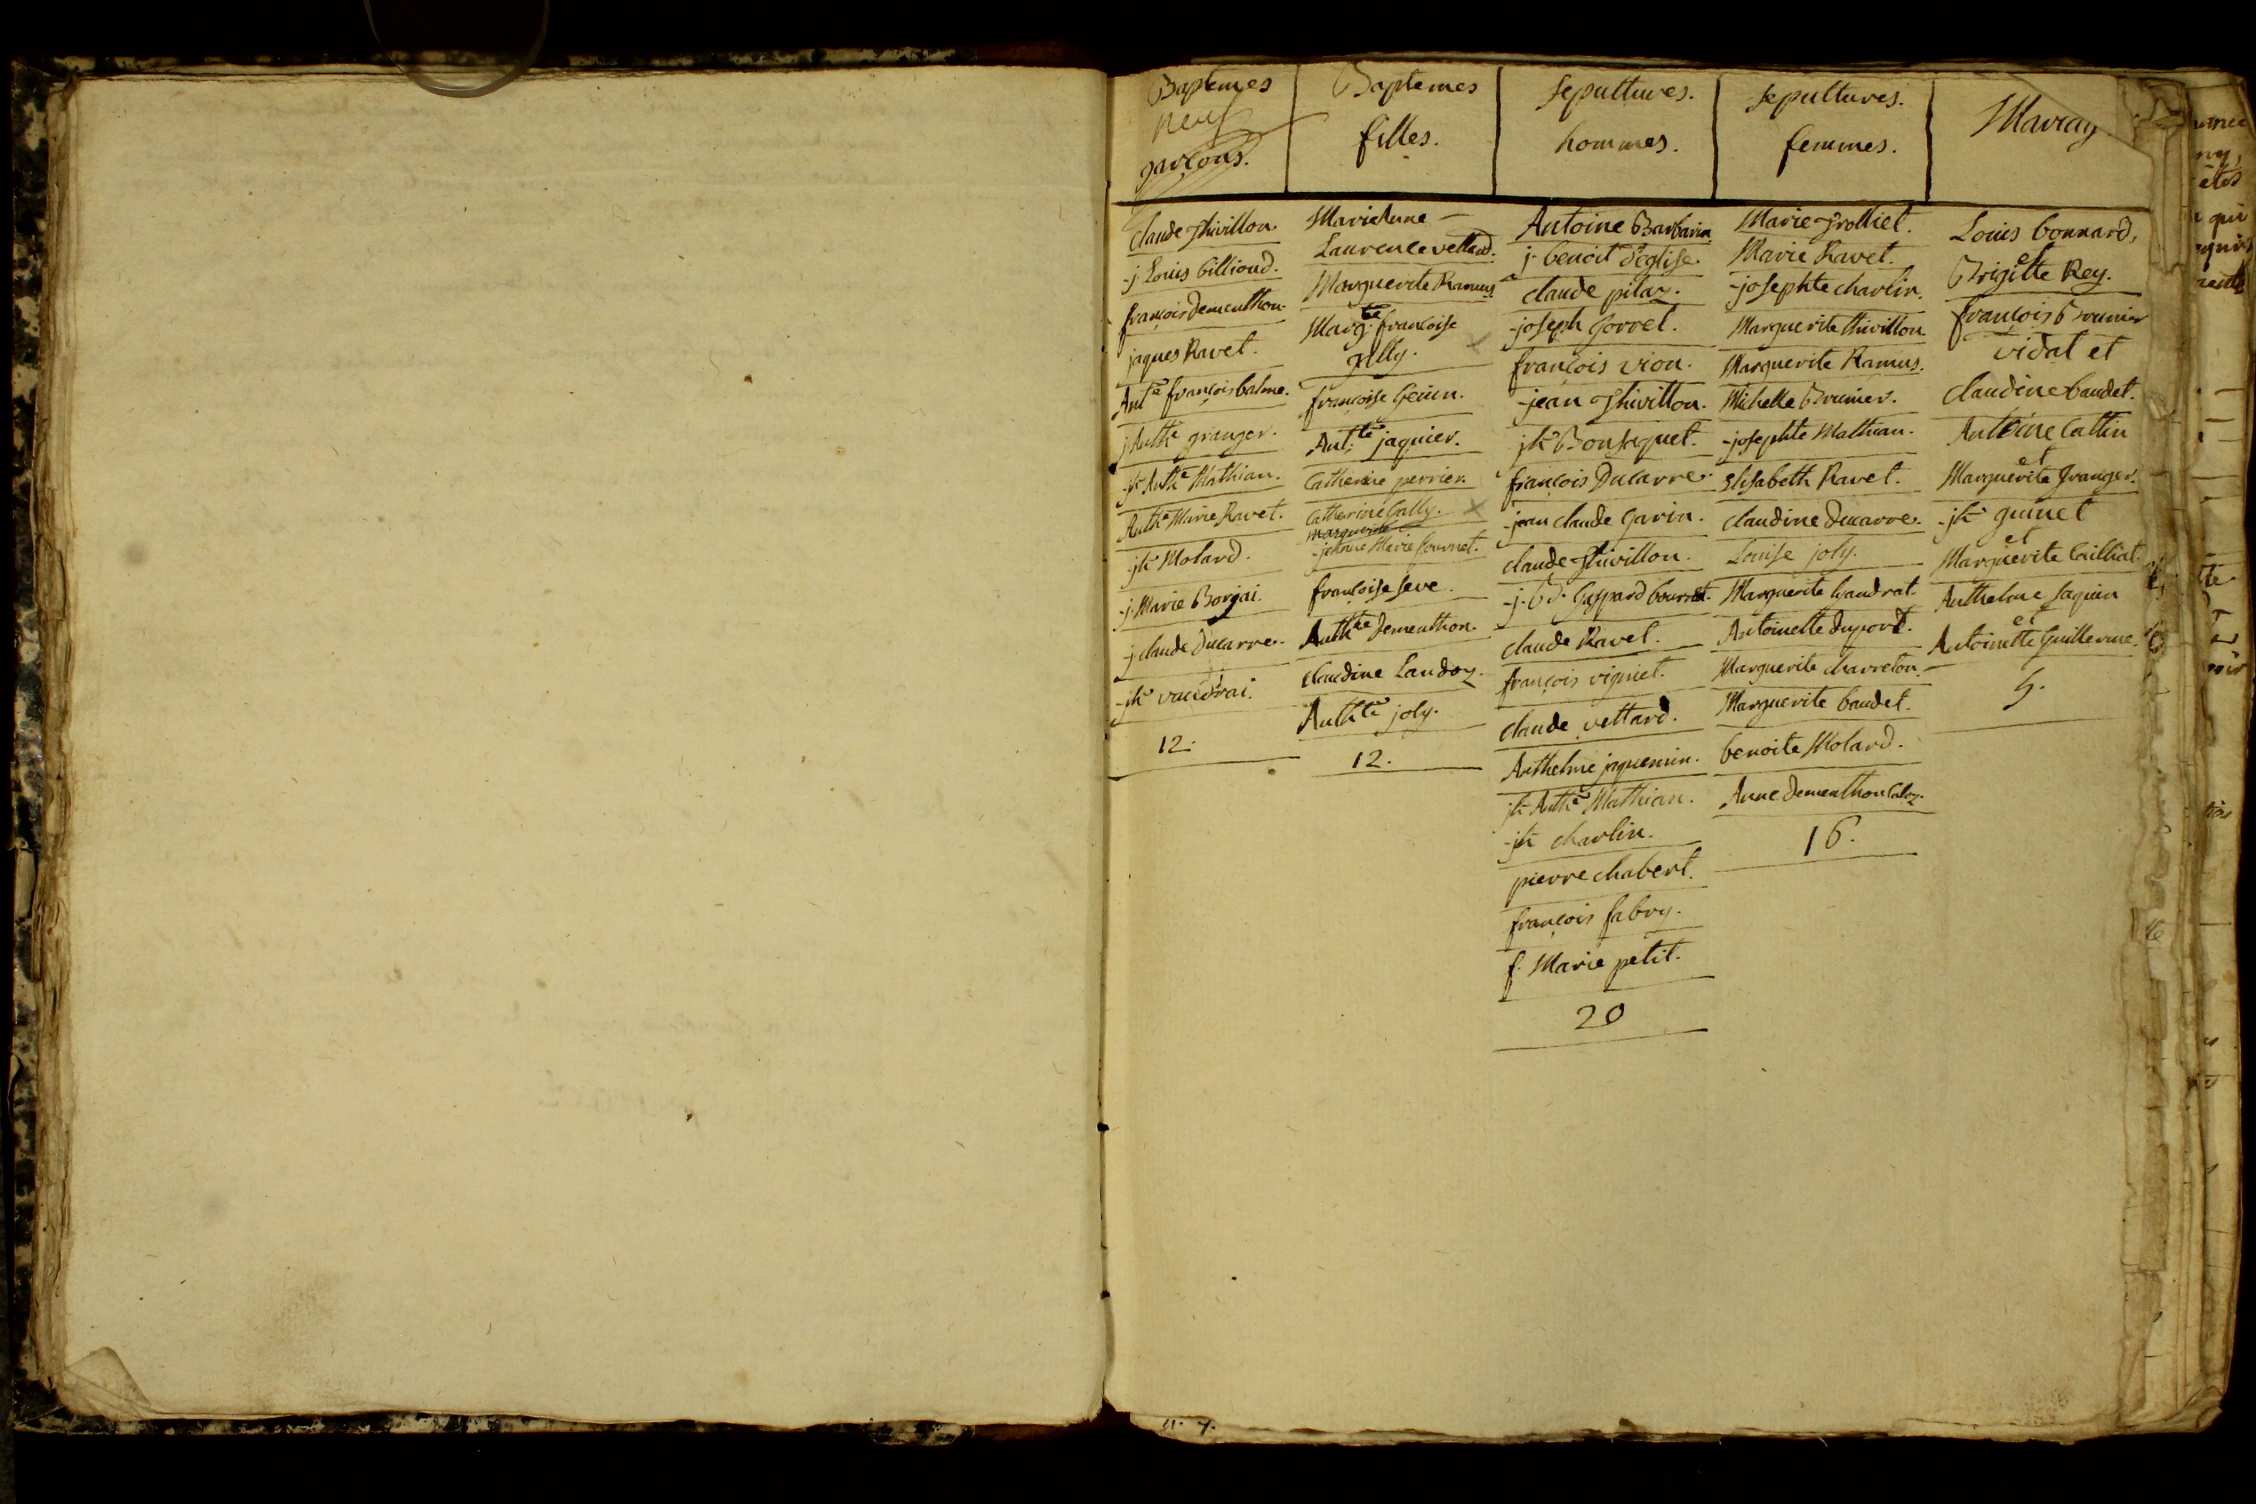 Baptemes
neuf
garçons.
claude Thivillon.
j Louis billioud.
françois dementhon.
jaques Ravet.
Ant.e françois balme.
j Anth.e granger.
jh Anth.e Mathian.
Anth.e Marie Ravet.
jh Molard.
j. Marie Borjai.
j claude Ducarre.
jh vaudrai.
12.
Baptemes
filles.
Marie Anne
Laurence vettard.
Marguerite Ramus
Marg.te françoise
gilly.
françoise Genin.
Ant.te jaquier.
Catherine perrier.
Catherine Gally.
marguerite
jeanne Marie fournet.
françoise seve.
Anth.te dementhon.
claudine Landoz.
Anth.te joly.
12.
sepultures.
hommes.
Antoine Barbarin
j. benoit d'eglise.
claude pilaz.
joseph Gorrel.
françois vion.
jean Thivillon.
jh Bonsaquet.
françois Ducarre
jean claude Gavin.
claude Thivillon.
j. B.d. Gaspard bourdat.
claude Ravet.
françois vigniet.
claude vettard.
Anthelme jaquemin.
jh Anth.e Mathian.
jh charlin.
pierre chabert.
françois fabry.
f. Marie petit.
20
sepultures.
femmes.
Marie Trolliet.
Marie Ravet.
josephte charlin.
Marguerite thivillon
Marguerite Ramus.
Michelle Brunier.
josephte Mathian.
Elisabeth Ravet.
claudine Ducarre.
Louise joly.
Marguerite Gaudrat.
Antoinette dupont.
Marguerite charreton
Marguerite baudet.
benoite Molard.
Anne dementhon Caloz.
16.
Mariag
Louis bonnard,
et
Brigitte Rey.
françois Brunier
vidal et
claudine baudet.
Antoine Cattin
et
Marguerite Granger.
jh guinet
et
Marguerite Cailliat.
Anthelme Jaquin
et
Antoinette Guillerme.
5.